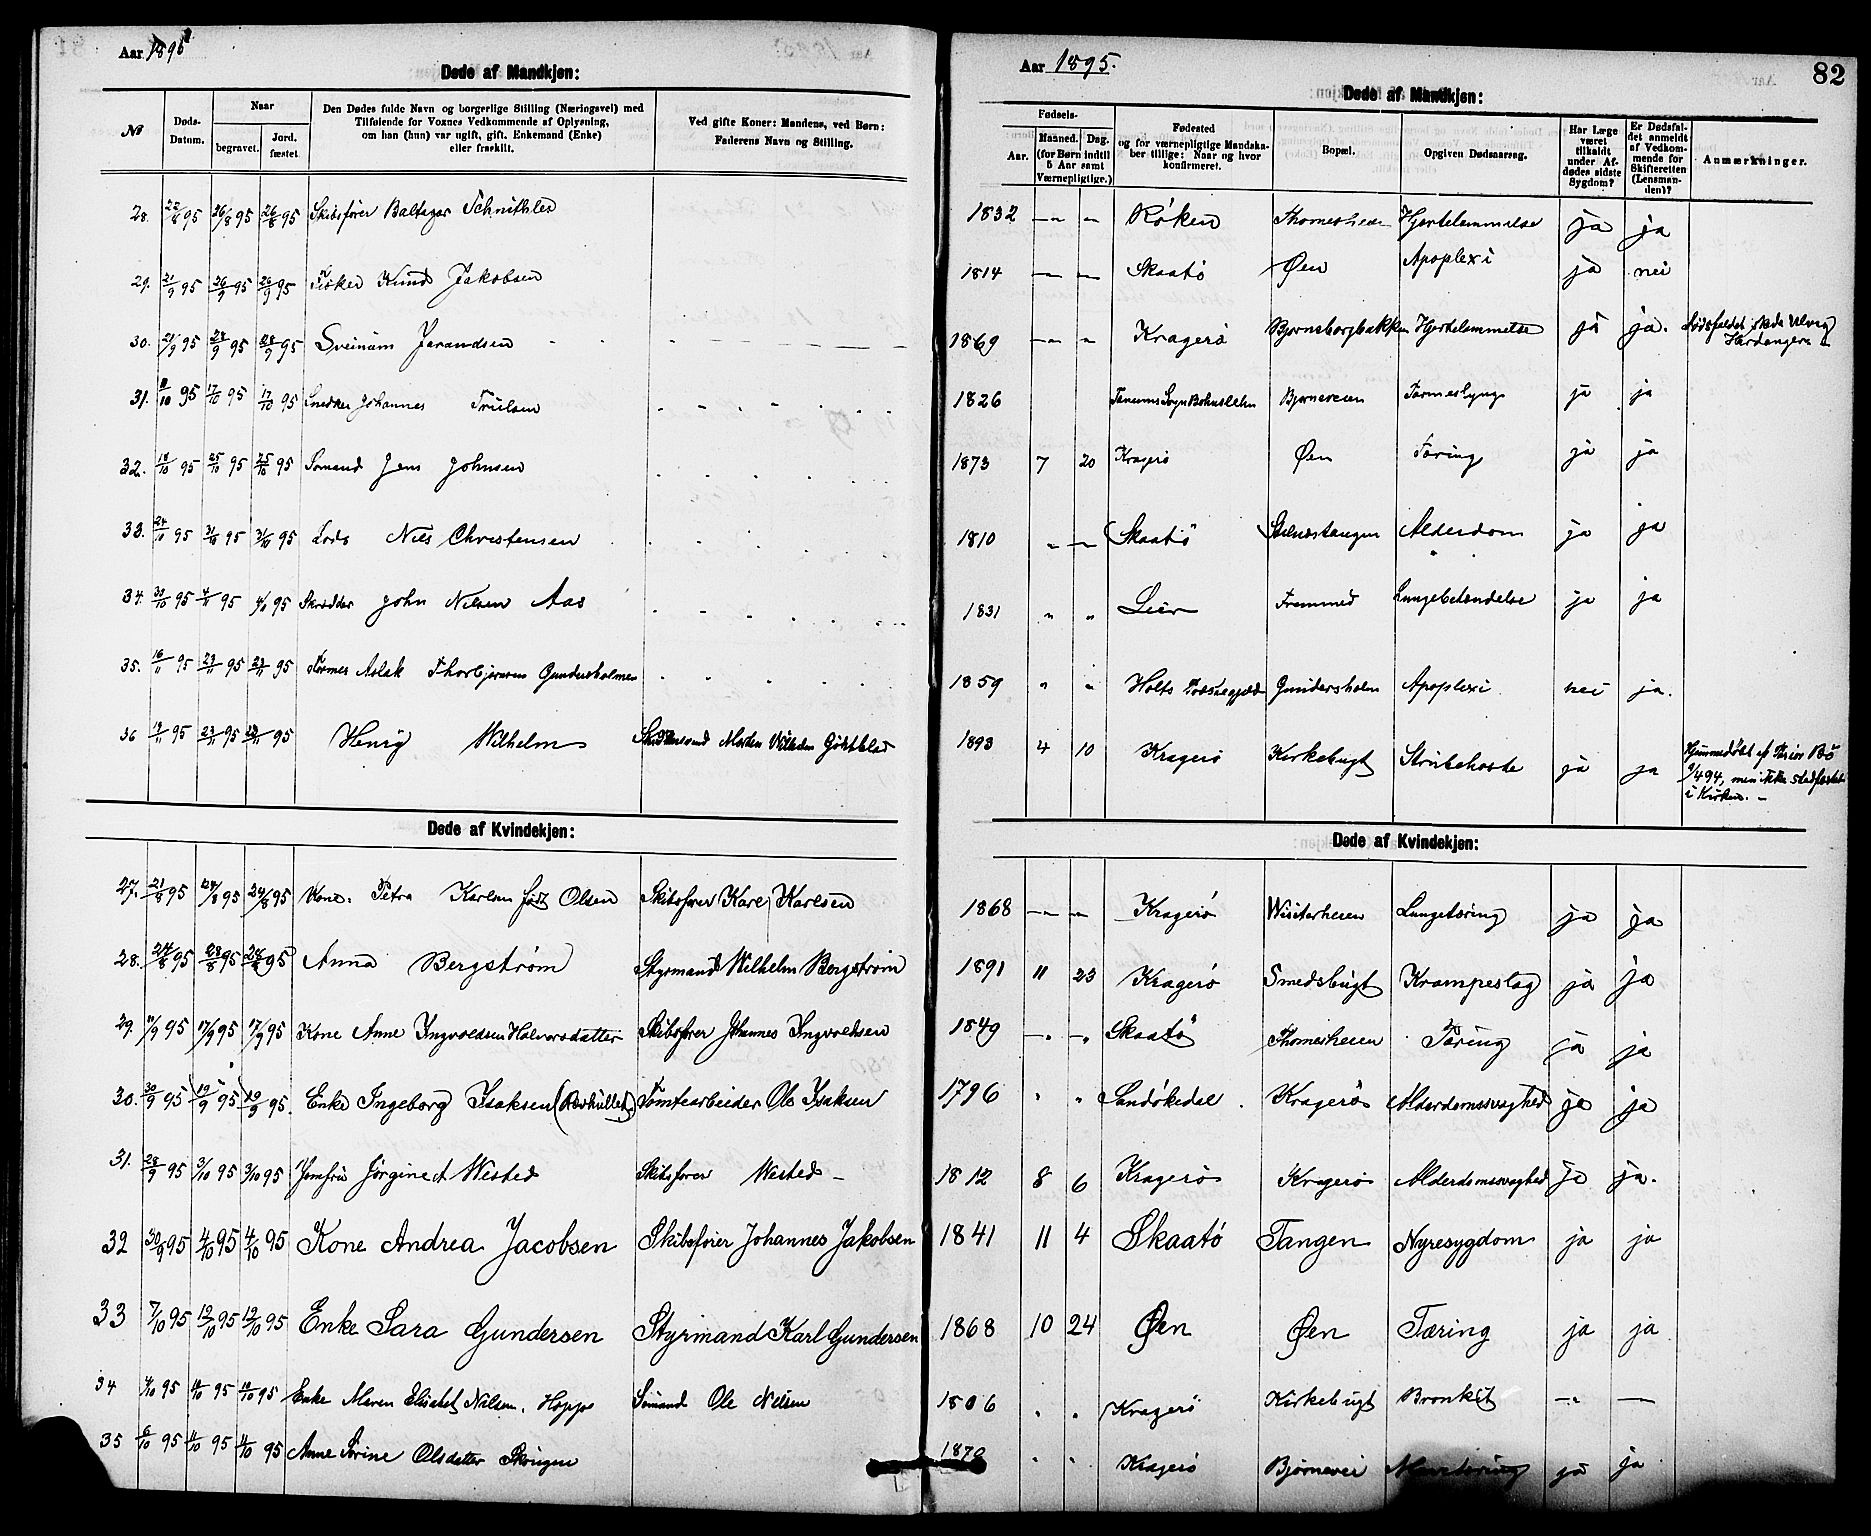 Aar 1895
Døde af Mandkjøn:
№
Døds-Datum.
Naar
begravet.
Jord-fæstet
Den Dødes fulde Navn og borgerlige Stilling (Næringsvei) med
Tilføiende for Voxnes Vedkommende af Oplysning,
om han (hun) var ugift, gift, Enkemand (Enke)
eller fraskilt.
Ved gifte Koner: Mandens, ved Børn:
Faderens Navn og Stilling.
28. 22/8 95 26/8 95 26/8 95 Skibsfører Baltazar Schnitler
29. 21/9 95 26/9 95 26/9 95 Fisker Knud Jakobsen
30. 21/9 95 28/9 95 28/9 95 Sveinum Jarandsen
31. 11/10 95 17/10 95 17/10 95 Snedker Johannes Trulsen
32. 18/10 95 25/10 95 25/10 95 Sømand Jens Johnsen
33. 24/10 95 31/10 95 31/10 95 Lods Nils Christensen
34. 30/10 95 4/11 95 95 Skrædder John Nilsen Aas
35. 16/11 95 23/11 95 23/11 95 Aslak Thorbjørnsen Gundersholmen
36 19/11 95 23/11 95 23/11 95 Henry Wilhelm
Døde af Kvindekjøn:
27. 21/8 95 24/8 95 24/8 95 Kone Petra Karlsen født Olsen Skibsfører Karl Karlsen
28. 24/8 95 28/8 95 28/8 95 Anna Bergstrøm Styrmand Wilhelm Bergstrøm
29. 11/9 95 17/9 95 17/9 95 Kone Anne Ingvoldsen Halvorsdatter Skibsfører Johannes Ingvoldsen
30. 30/9 95 19/9 95 19/9 95. Enke Ingeborg Isaksen Tomtearbeider Ole Isaksen
31. 28/9 95 3/10 95 3/10 95 Jomfru Jørgine Wested Skibsfører Wested –
32 30/9 95 4/10 95 4/10 95 Kone Andrea Jacobsen Skibsfører Johannes Jakobsen
33 7/10 95 12/10 95 12/10 95 Enke Sara Gundersen Styrmand Karl Gundersen
34 95 95 95 Enke Maren Elisabet Nilsen, Hoppe Sømand Ole Nilsen
35 6/10 95 11/10 95 11/10 95 Anne Sørine Olsdatter
82
Aar 1895.
Døde af Mandkjøn:
Fødsels-
Aar.
Maaned. Dag.
(for Børn indtil
5 Aar samt
Værnepligtige.)
Fødested
og for værnepligtige Mandska-
ber tillige: Naar og hvor
konfirmeret.
Bopæl.
Opgiven Dødsaarsag.
Har Læge
været
tilkaldt
under Af-
dødes sidste
Sygdom?
Er Dødsfal-
det anmeldt
af Vedkom-
mende for
Skifteretten
(Lensman-
den)?
Anmærkninger.
1832 Røken Thomesheien Hjertelammelse ja ja
1814 Skaatø Øen Apoplexi ja nei
1869 Kragerø Bjørnsborgbakken Hjertelammelse ja ja. Dødsfaldet skede Ulvig i Hardanger
1826 Tanums Sogn Bohuslehn Bjørneveien ja ja
1873 7 20 Kragerø Øen Tæring ja ja
1810 " Skaatø Stilnestangen Alderdom ja ja
1831 " " Lier Fremmed Lungebetændelse ja ja
1859 " " Holts Præstegjæld Gundersholm Apoplexi nei ja.
1893 4 10 Kragerø Kirkebugt Strubehoste ja ja Hjemmedøbt af 94, men ikke stadfæstet i Kirken. –
Døde af Kvindekjøn:
1868 Kragerø Wisiterheien Lungetæring ja ja
1891 11 23 Kragerø Smedsbugt Krampeslag ja ja
1849 Skaatø Thomesheien Tæring ja ja
1796 " " Sandøkedal Kragerø Alderdomssvaghed ja ja
1812 8 6 Kragerø Kragerø Alderdomssvaghed ja ja.
1841 11 4 Skaatø Tangen Nyresygdom ja ja
1868 10 24 Øen Øen Tæring ja ja
1806 " " Kragerø Kirkebugt Bronkit
1870 " " Kragerø Bjørnevei ja ja